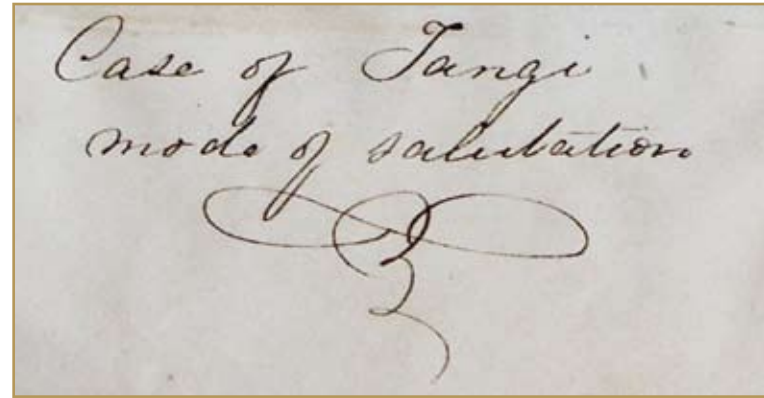 Case of Tangi
mode of salutation